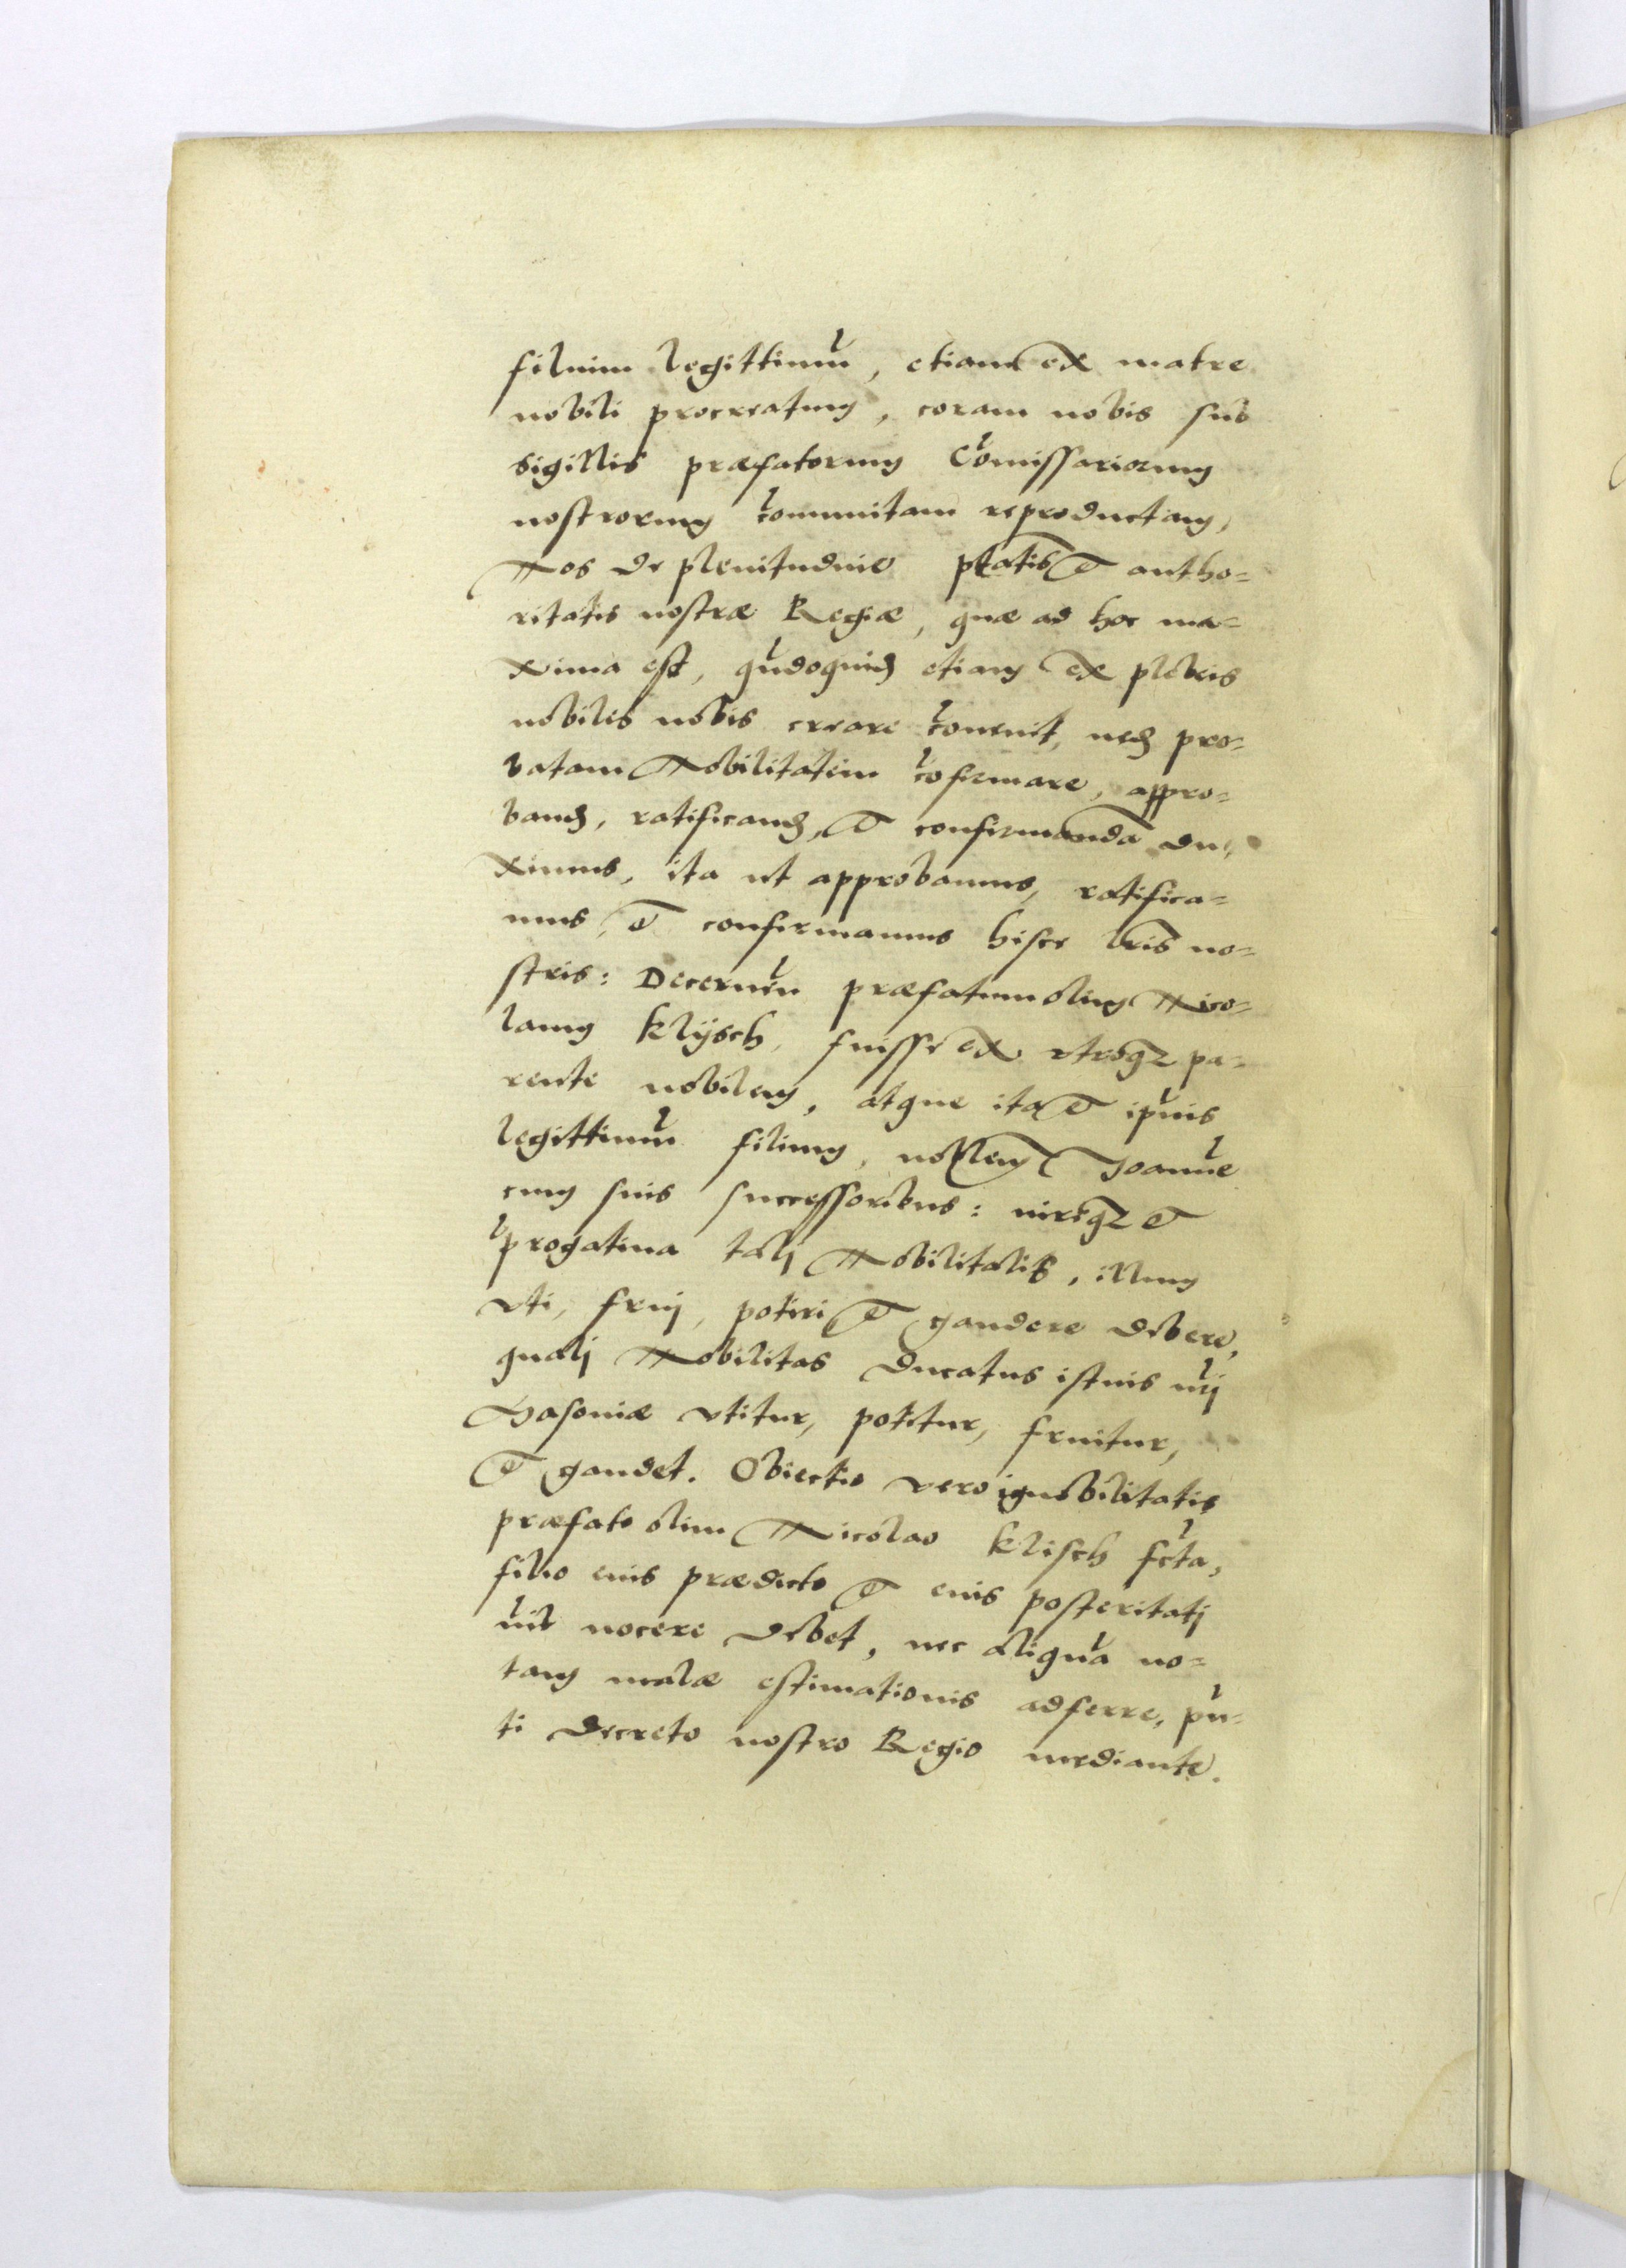 filium legittimũ, etiam ex matre
nobili procreatum, coram nobis sub
sigillis præfatorum Cõmissariorum
nostrorum cõmunitam reproductam,
Nos de plenitudine ptãtis et autho=
ritatis nostræ Regiæ, quæ ad hoc ma=
xima est, qũdoquid etiam ex plebeis
nobiles nobis creare cõuenit, ned pro=
batam Nobilitatem cõfirmare, appro=
band, ratificand, et confirmandã du=
ximus, ita ut approbamus, ratifica=
mus, et confirmamus hisce lr̃is no=
stris: Decernẽn præfatum olim Nico=
laum Klÿsch, fuisse ex vtroq3 pa=
rente nobilem, atque ita et ip̃ius
legittimũ filium, nobilem Joannẽ
cum suis successoribus: iureq3 et
p̃rogatiua talj Nobilitatis, illum
vti, fruj, potiri et gaudere debere,
qualj Nobilitas Ducatus istius nr̃j
Masouiæ vtitur, potitur, fruitur,
et gaudet. Obiectio vero ignobilitatis
præfato olim Nicolao Klisch fcta,
filio eius prædicto et eius posteritatj
nil nocere debet, nec aliquã no=
tam malæ estimationis adferre, pñ=
ti Decreto nostro Regio mediante.